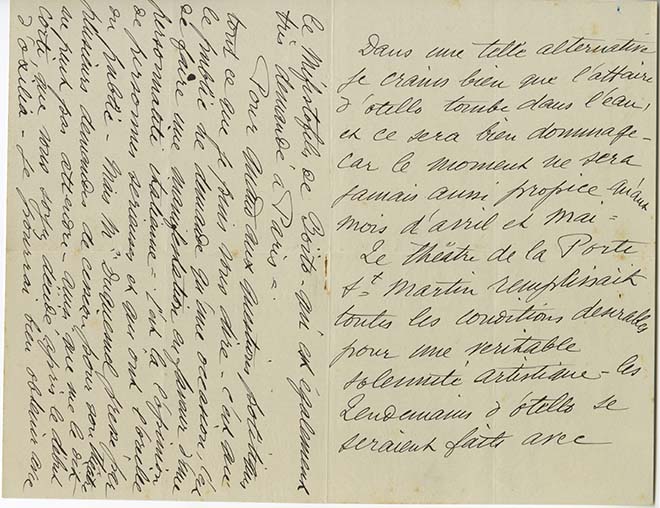 Dans une telle alternative
je crains bien que l'affaire
d'otello tombe dans l'eau,
et ce sera bien dommage -
car le moment ne sera
jamais aussi propice qu'aux
mois d'avril et Mai -
Le théâtre de la Porte
St Martin remplissait
toutes les conditions desirables
pour une veritable
solennité artistique - les
Lendemains d'otello se
seraient faits avec
le Mefistofele de Boïto - qui est également
très demandé à Paris -
Pour aux questions politiques
tout ce que je puis vous dire - c'est que
le public ne demande qu'une occasion, ici
de faire une manifestation en faveur d'une
personnalité italienne - C'est là l'opinion
de personnes sérieuses et qui ont l'oreille
du public - Mais Mr Duquesnel pressé par
plusieurs demandes de pour son théâtre
ne peut pas attendre - ainsi
que nous soyons après le début
d'oxilia - Je pourrai bien obtenir une